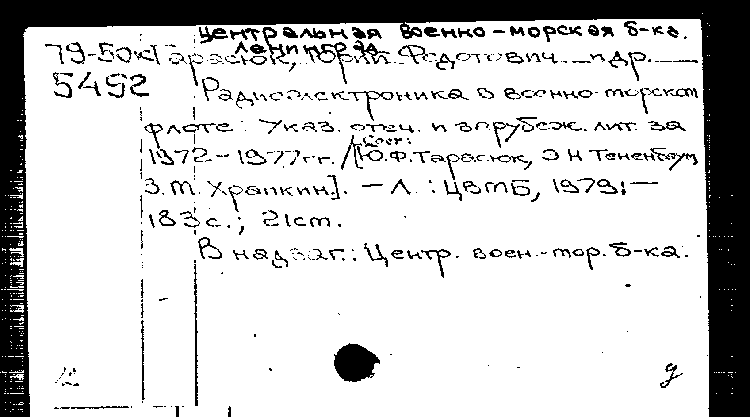 Центральная военно-морская б-ка.
Ленинград
79-50к Тарасюк, Юрий Федотович и др.
5492 Радиоэлектроника в военно-морском
флоте: Указ. отеч. и зарубеж. лит. за
1972-1977гг. / [Сост.: Ю.Ф.Тарасюк, Э Н Тененбаум,
З.М. Храпкин]. - Л. : ЦВМБ, 1979. -
183с.; 21см.
В надзаг.: Центр. воен.-мор. б-ка.
12 д